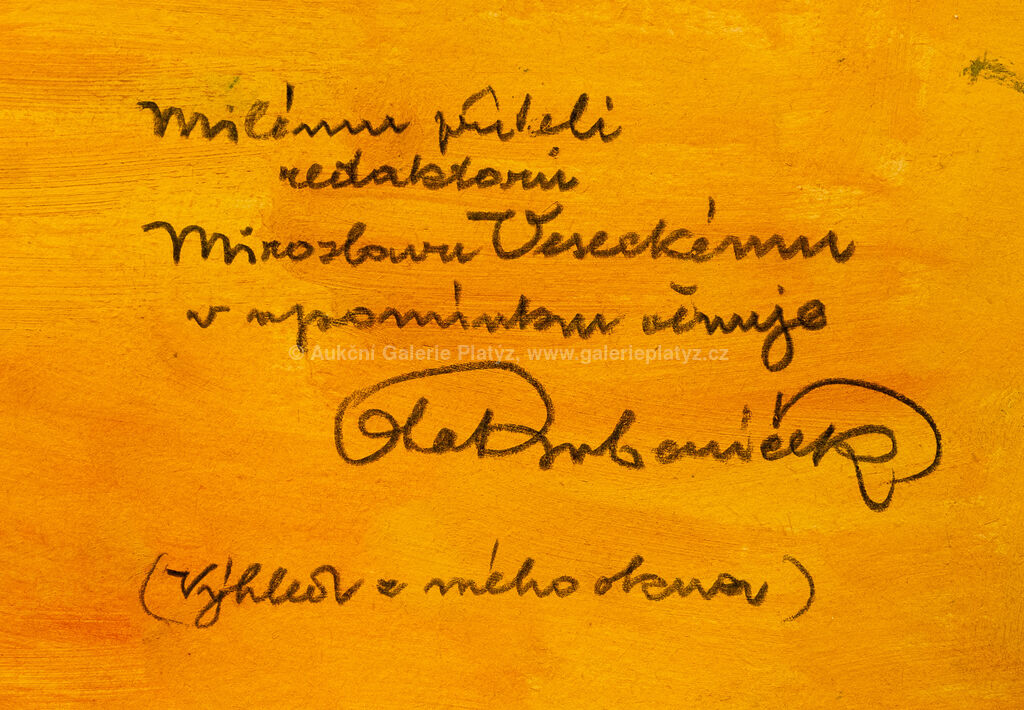 Milému příteli
redaktoru
Miroslavu Veseckému
v upomínku věnuje
© Aukční Galerie Platýz, www.galerieplatyz.cz
Ota Bubeníček
(Výhled z mého okna)